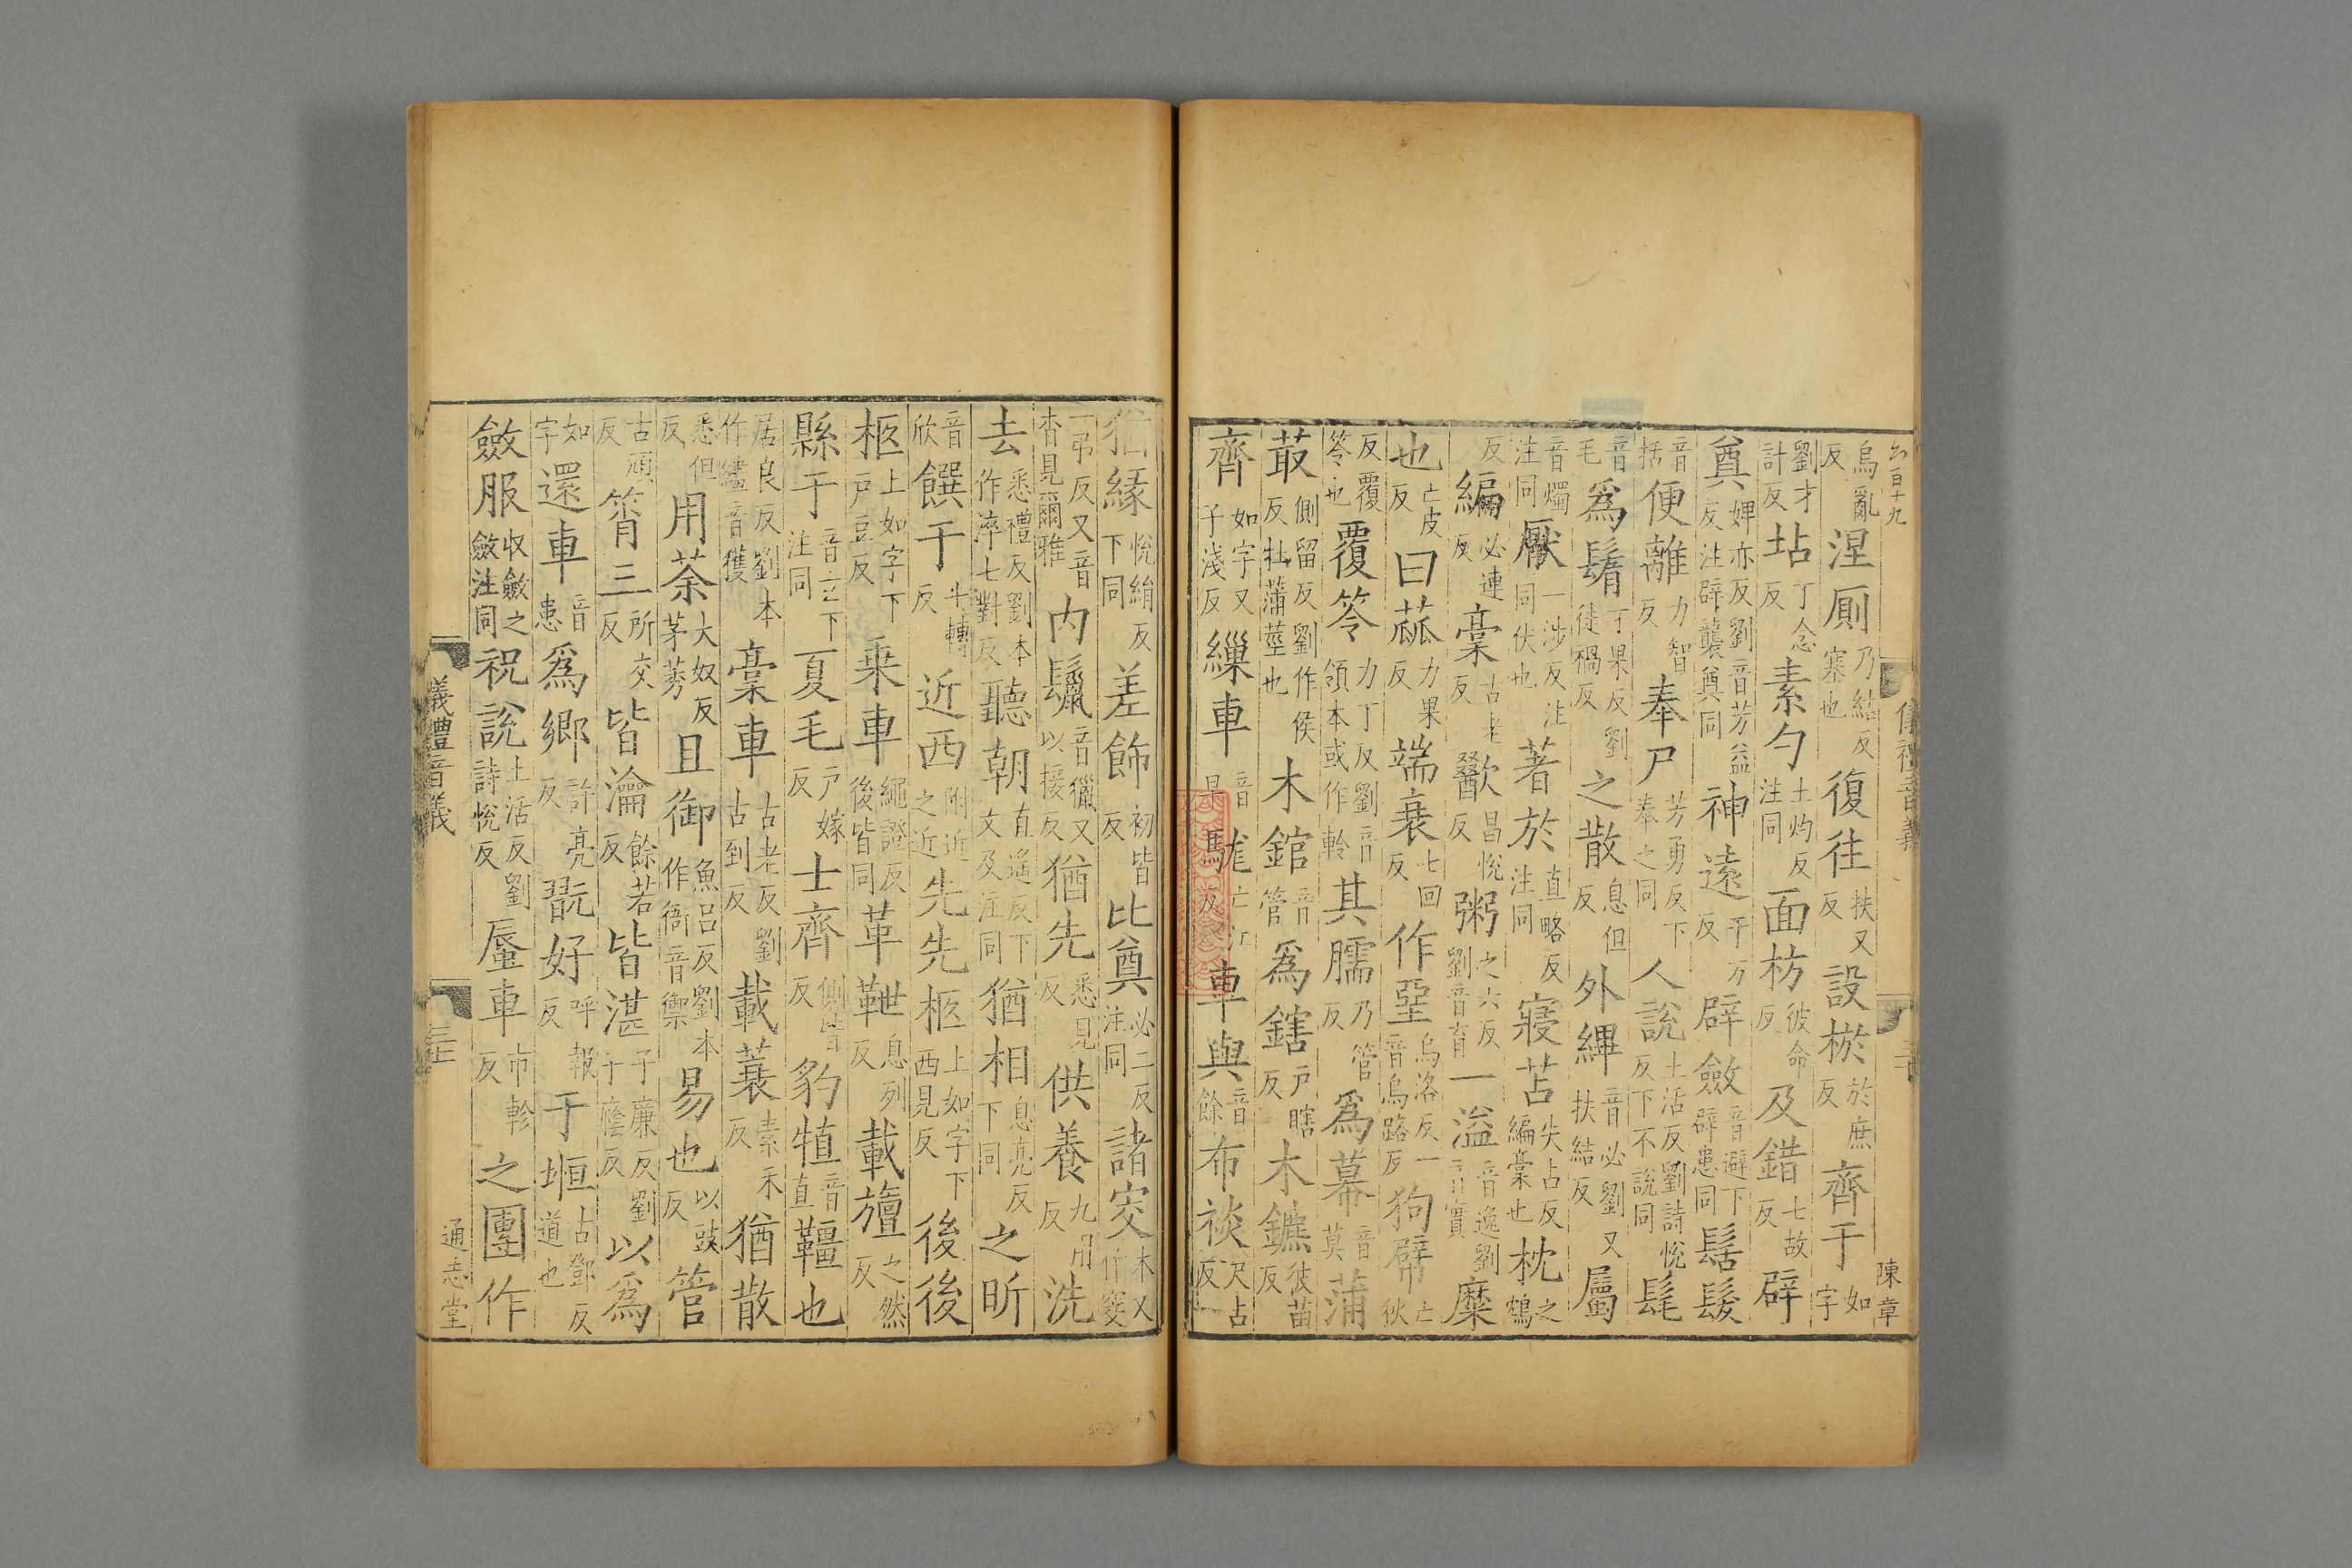 烏亂反涅廁乃結反塞也復往扶又反設棜於庶反齊于如字
劉才計反坫丁念反素勺上灼反注同面枋彼命反及錯七故反辟
奠婢亦反劉音芳益反注辟襲奠同神遠于万反辟斂音避下辟患同髺髮
音括便離力智反奉尸芳勇反下奉之同人說土活反劉詩悅反下不說同髦
音毛爲鬌丁果反劉徒禍反之散息但反外縪音必劉又扶結反屬
音燭注同厭一涉反注同伏也著於直略反注同寢苫失占反編藁也枕之鴆
反編必連反藁古老反歠昌悅反粥之六反劉音育一溢音逸劉音實糜
亡皮反也曰蓏力果反端衰七回反作堊烏洛反一音烏路反狗幦亡狄
反覆笭也覆笭力丁反劉音領本或作軨其臑乃管反爲幕音莫蒲
菆側留反劉作侯反牡蒲莖也木錧音管爲鎋戶瞎反木鑣彼苗反
齊如字又子淺反繅車音早駹亡江反車與音餘布裧尺占反
猶緣悅絹反下同差飾初皆反比奠必二反注同諸突木又作窔
一弔反又音杳見爾雅內鬛音獵又以接反猶先悉見反供養九用反洗
去悉禮反劉本作淬七對反聽朝直遙反下文及注同猶相息亮反下同之昕
音欣饌于士轉反近西附近之近先先柩上如字下西見反後後
柩上如字下戶豆反乘車繩證反後皆同革靾息列反載旜之然反
縣于音玄下注同夏毛戶嫁反士齊側皆反豹犆音直韁也
居良反劉本作繮音獲藁車古老反劉古到反載蓑素禾反猶散
悉但反用荼大奴反茅莠且御魚呂反劉本作衙音禦易也以豉反管
古頑反筲三所交反皆瀹餘若反皆湛子廉反劉子廕反以爲
如字還車音患爲鄉許亮反翫好呼報反于堩古鄧反道也
斂服收斂之斂注同祝說土活反劉詩悅反蜃車市軫反之團作
儀禮音義
陳章
儀禮音義
通志堂